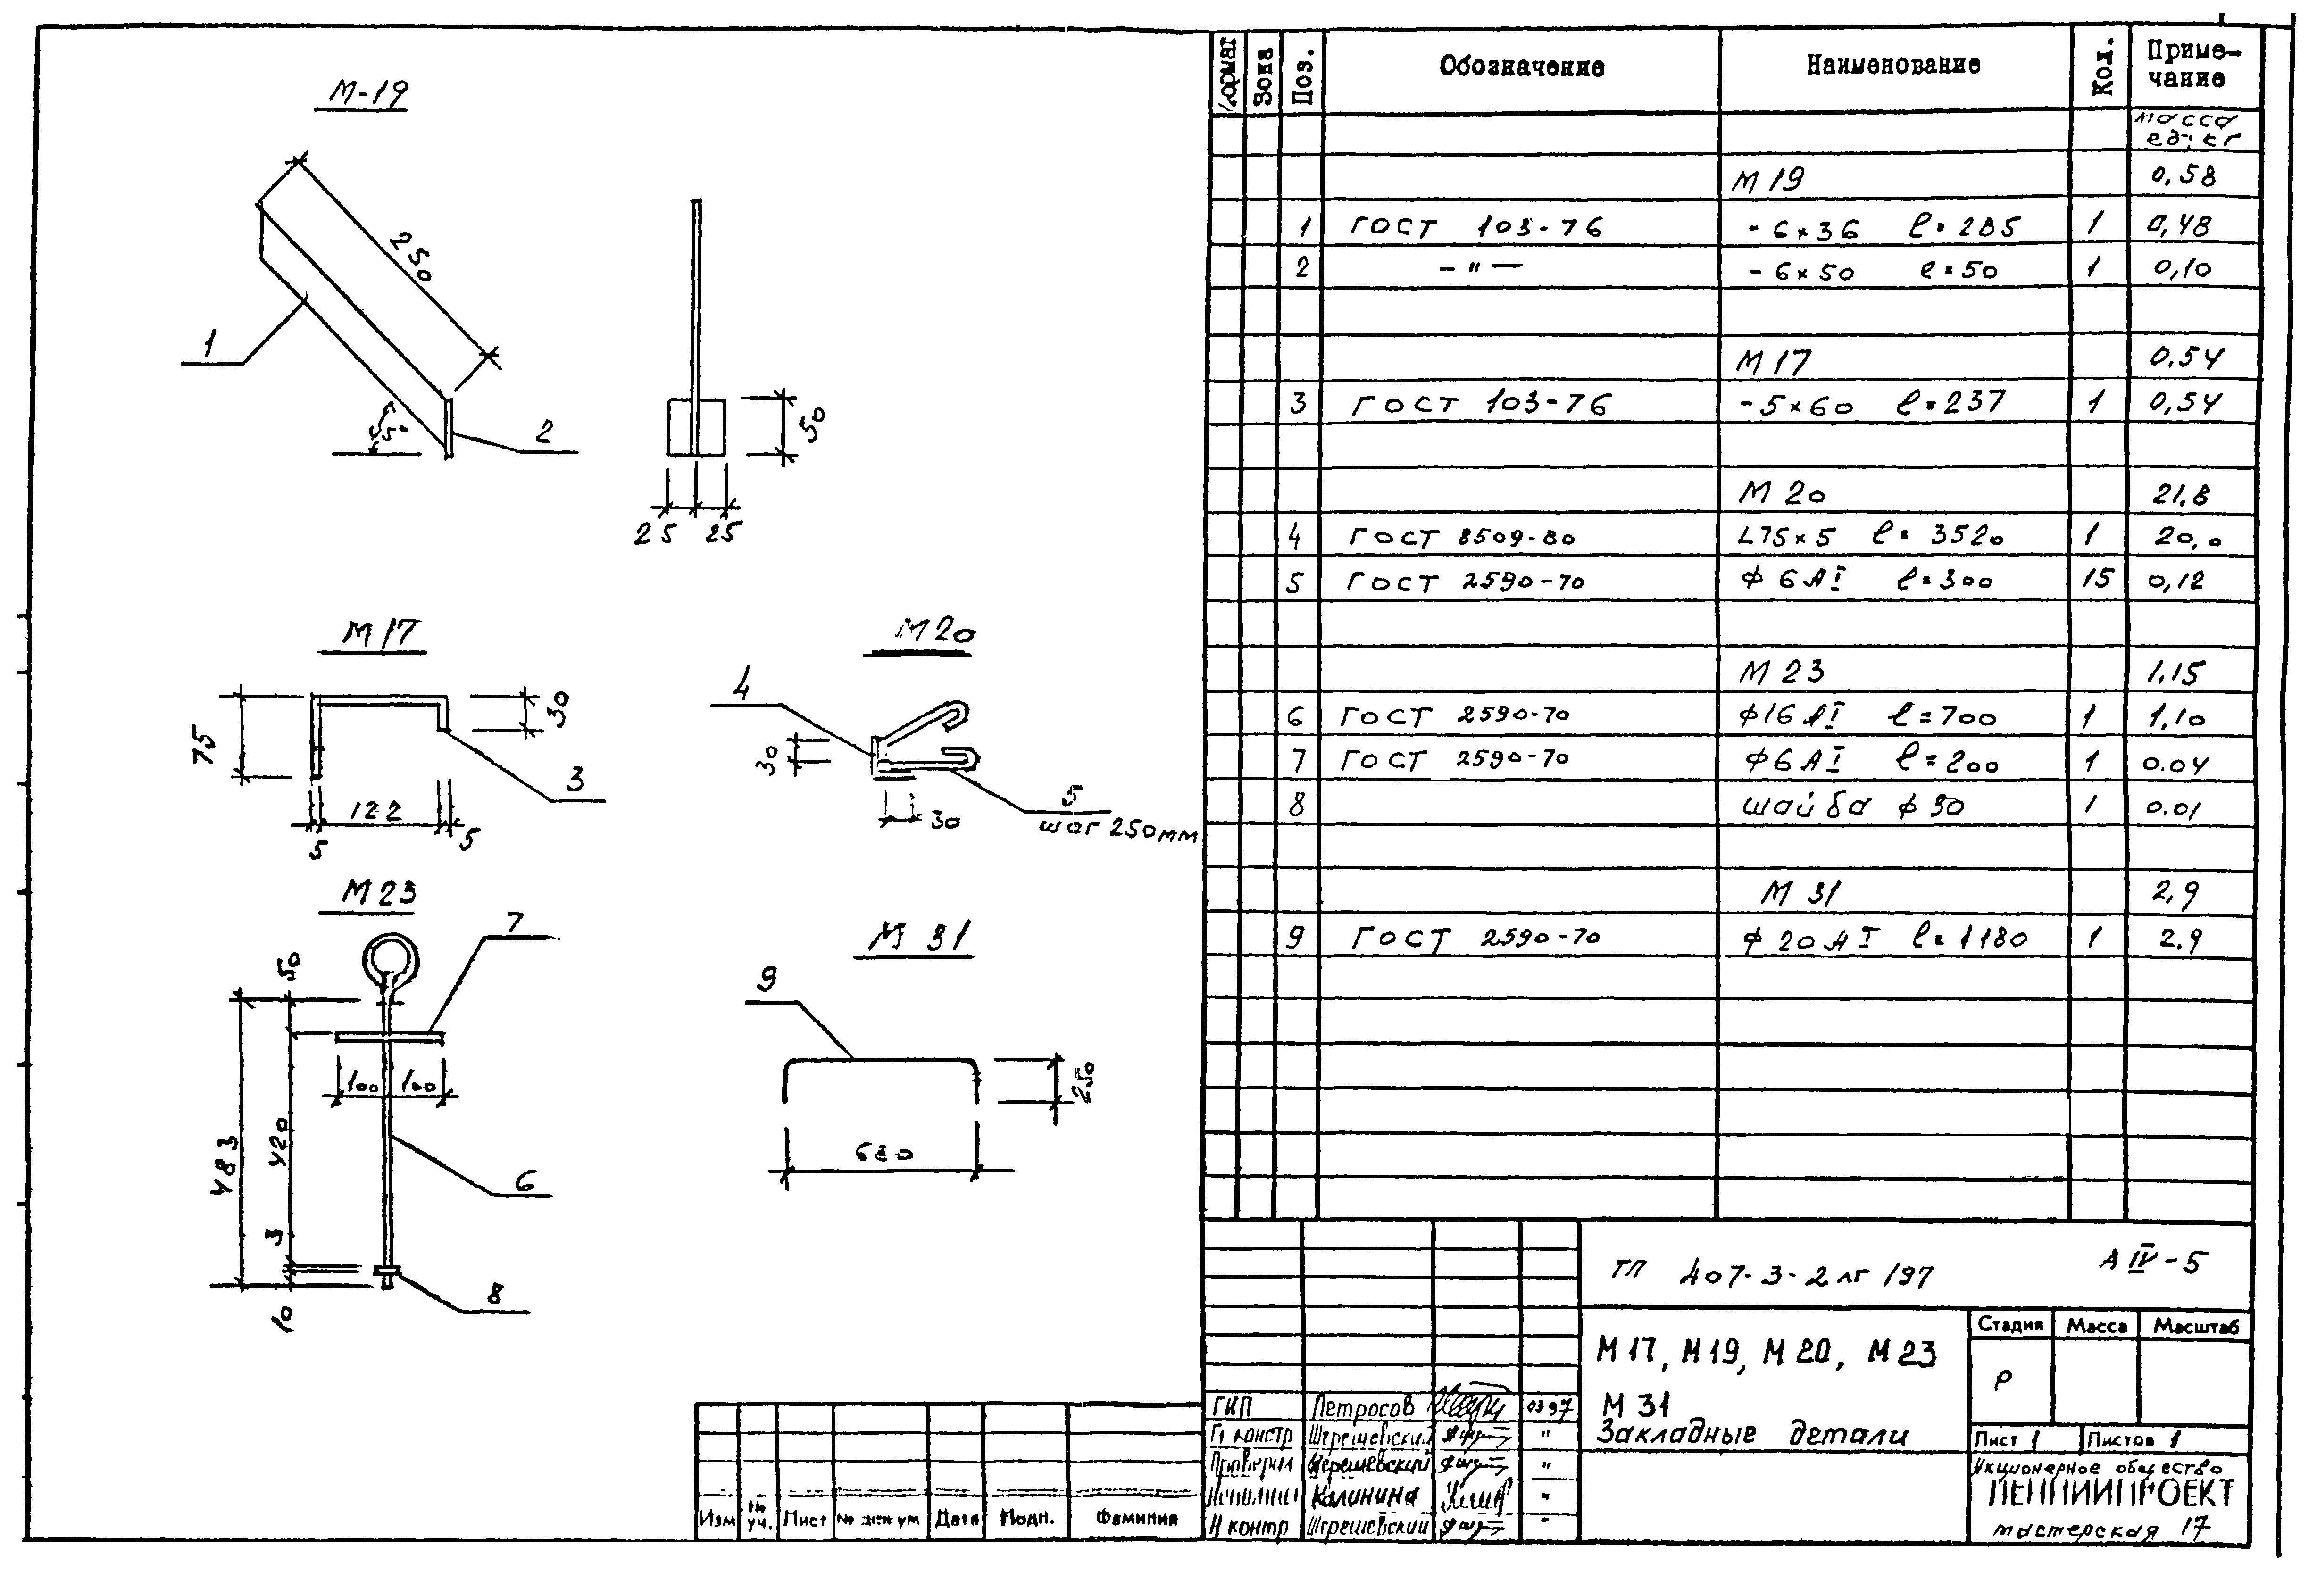 М-19
250
1
45°
2
50
25 25
М17
75
30
3
122
5
5
М20
4
30
30
5
шаг 250мм
М23
7
50
100 100
483
420
6
3
8
10
М 31
9
250
680
Формат Зона Поз. Обозначение Наименование Кол. Приме-
чание
масса
ед; кг
М 19 0,58
1 ГОСТ 103-76 - 6×36 ℓ=285 1 0,48
2 - " - - 6×50 ℓ=50 1 0,10
М 17 0.54
3 ГОСТ 103-76 - 5×60 ℓ=237 1 0,54
М 20 21.8
4 ГОСТ 8509-80 L75×5 ℓ= 3520 1 20,0
5 ГОСТ 2590-70 ф 6 АI ℓ=300 15 0,12
М 23 1,15
6 ГОСТ 2590-70 ф16 АI ℓ=700 1 1,10
7 ГОСТ 2590-70 ф6 АI ℓ=200 1 0.04
8 шайба ф 30 1 0.01
М 31 2,9
9 ГОСТ 2590-70 ф 20 АI ℓ=1180 1 2.9
ТП 407-3-2лг/97 А IV-5
М 17, М 19, М 20, М 23
М 31
Закладные детали
Стадия Масса Масштаб
Р
Лист 1 Листов 1
Акционерное общество
ЛЕННИИПРОЕКТ
мастерская 17
ГИП Петросов 03 97
Гл констр Шерешевский "
Проверил Шерешевский "
Исполнил Калинина "
Н контр Шерешевский "
Изм № уч. Лист № докум Дата Подп. Фамилия